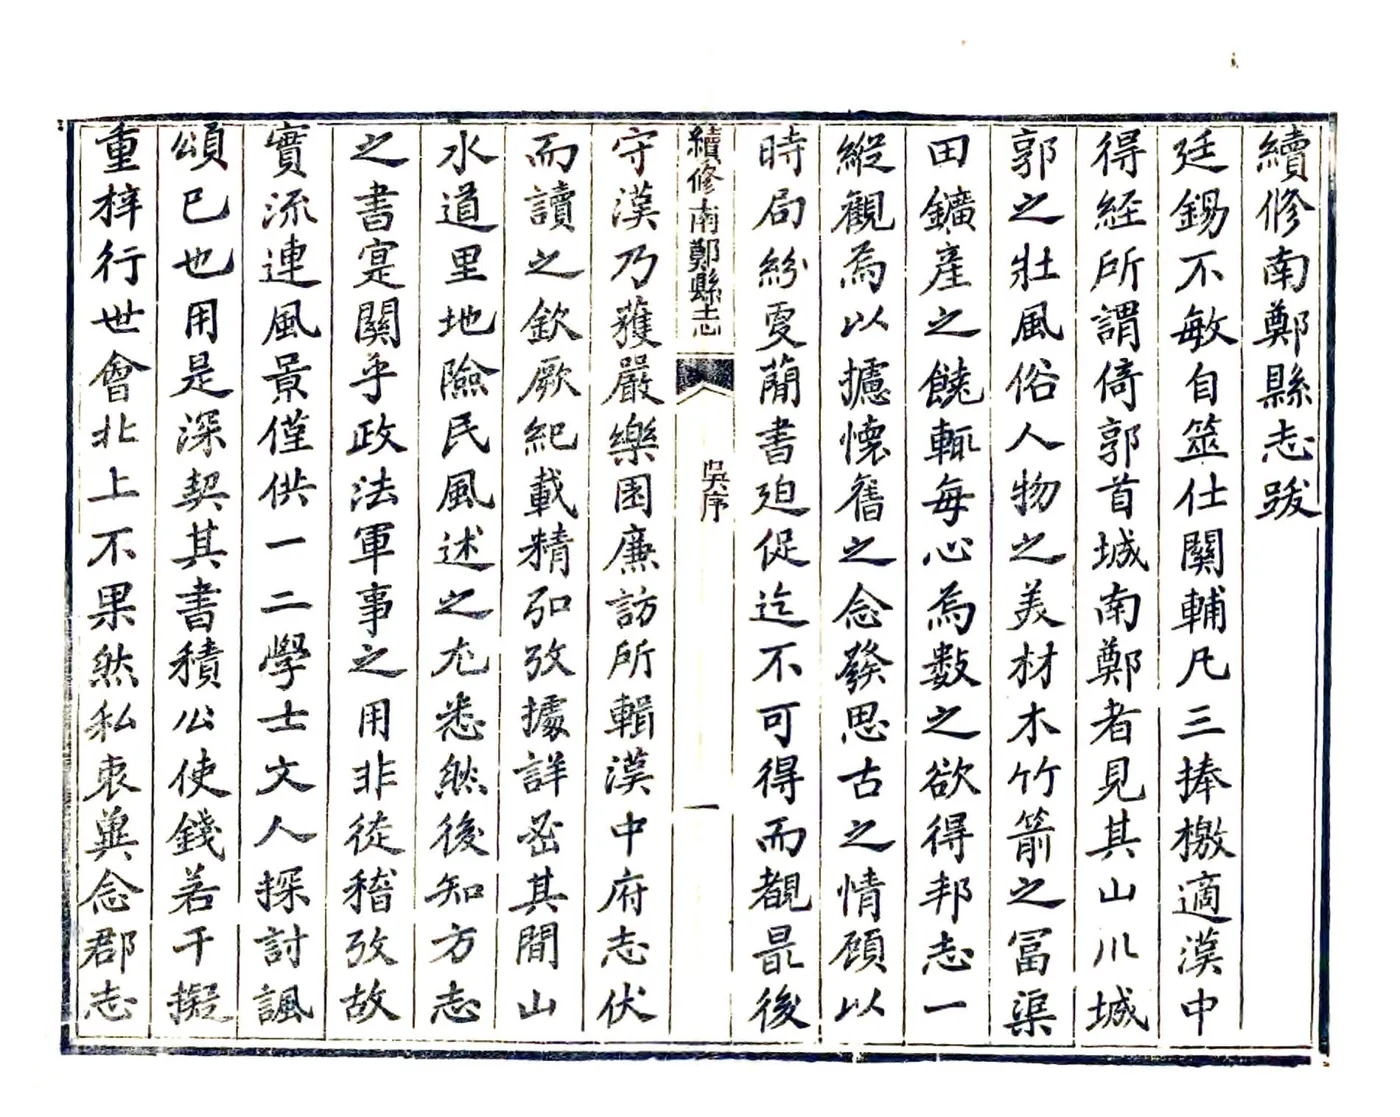 續修南鄭縣志跋
廷錫不敏自筮仕關輔凡三捧檄適漢中
得経所謂倚郭首城南鄭者見其山川城
郭之壯風俗人物之美材木竹箭之冨渠
田鑛産之饒輒每心爲數之欲得邦志一
縱觀爲以攄懷舊之念發思古之情顧以
時局紛更簡書廹促迄不可得而覩最後
續修南鄭縣志
吳序
一
守漢乃獲嚴樂園廉訪所輯漢中府志伏
而讀之欽厥紀載精弘攷據詳宻其間山
水道里地險民風述之尤悉然後知方志
之書寔關乎政法軍事之用非徒稽攷故
實流連風景僅供一二學士文人探討諷
頌已也用是深契其書積公使錢若干擬
重梓行世會北上不果然私衷兾念郡志